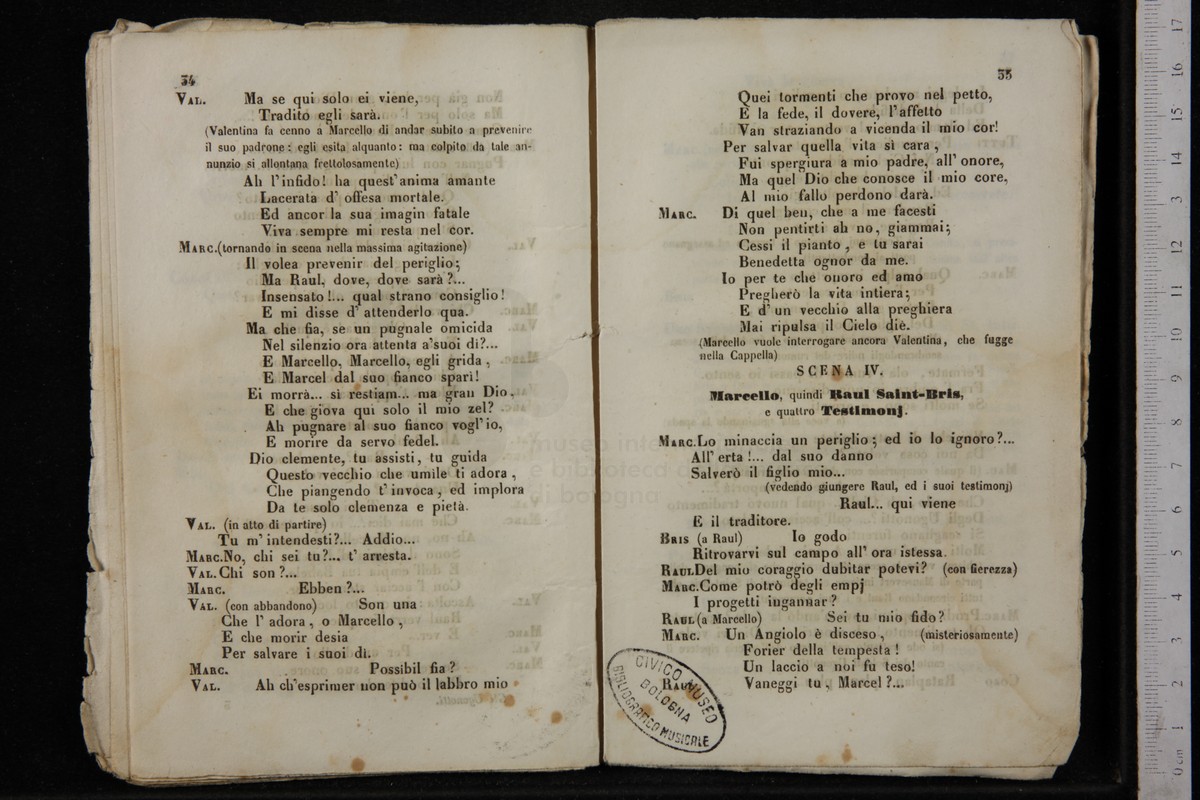 34
VAL. Ma se qui solo ei viene,
Tradito egli sarà.
(Valentina fa cenno a Marcello di andar subito a prevenire
il suo padrone: egli esita alquanto: ma colpito da tale an-
nunzio si allontana frettolosamente)
Ah l'infido! ha quest'anima amante
Lacerata d' offesa mortale.
Ed ancor la sua imagin fatale
Viva sempre mi resta nel cor.
MARC.(tornando in scena nella massima agitazione)
Il volea prevenir del periglio;
Ma Raul, dove, dove sarà?...
Insensato!... qual strano consiglio!
E mi disse d' attenderlo qua.
Ma che fia, se un pugnale omicida
Nel silenzio ora attenta a'suoi dì?...
E Marcello, Marcello, egli grida,
E Marcel dal suo fianco sparì!
Ei morrà... sì restiam... ma gran Dio.
E che giova qui solo il mio zel?
Ah pugnare al suo fianco vogl'io,
E morire da servo fedel.
Dio clemente, tu assisti, tu guida
Questo vecchio che umile ti adora,
Che piangendo t' invoca, ed implora
Da te solo clemenza e pietà.
VAL. (in atto di partire)
Tu m' intendesti?... Addio...
MARC.No, chi sei tu?... t' arresta.
VAL.Chi son?...
MARC. Ebben?...
VAL. (con abbandono) Son una
Che l' adora, o Marcello,
E che morir desia
Per salvare i suoi dì.
MARC. Possibil fia?
VAL. Ah ch'esprimer non può il labbro mio
35
Quei tormenti che provo nel petto,
E la fede, il dovere, l'affetto
Van straziando a vicenda il mio cor!
Per salvar quella vita sì cara,
Fui spergiura a mio padre, all' onore,
Ma quel Dio che conosce il mio core,
Al mio fallo perdono darà.
MARC. Di quel ben, che a me facesti
Non pentirti ah no, giammai;
Cessi il pianto, e tu sarai
Benedetta ognor da me.
Io per te che onoro ed amo
Pregherò la vita intiera;
E d' un vecchio alla preghiera
Mai ripulsa il Cielo diè.
(Marcello vuole interrogare ancora Valentina, che fugge
nella Cappella)
SCENA IV.
Marcello, quindi Raul Saint-Bris,
e quattro Testimonj.
MARC.Lo minaccia un periglio; ed io lo ignoro?...
All' erta!... dal suo danno
Salverò il figlio mio...
(vedendo giungere Raul, ed i suoi testimonj)
Raul... qui viene
E il traditore.
BRIS (a Raul) Io godo
Ritrovarvi sul campo all' ora istessa.
RAUL.Del mio coraggio dubitar potevi? (con fierezza)
MARC.Come potrò degli empj
I progetti ingannar?
RAUL(a Marcello) Sei tu mio fido?
MARC. Un Angiolo è disceso, (misteriosamente)
Forier della tempesta!
Un laccio a noi fu teso!
RAUL Vaneggi tu, Marcel?...
CIVICO MUSEO
BIBLIOGRAFICO MUSICALE
BOLOGNA